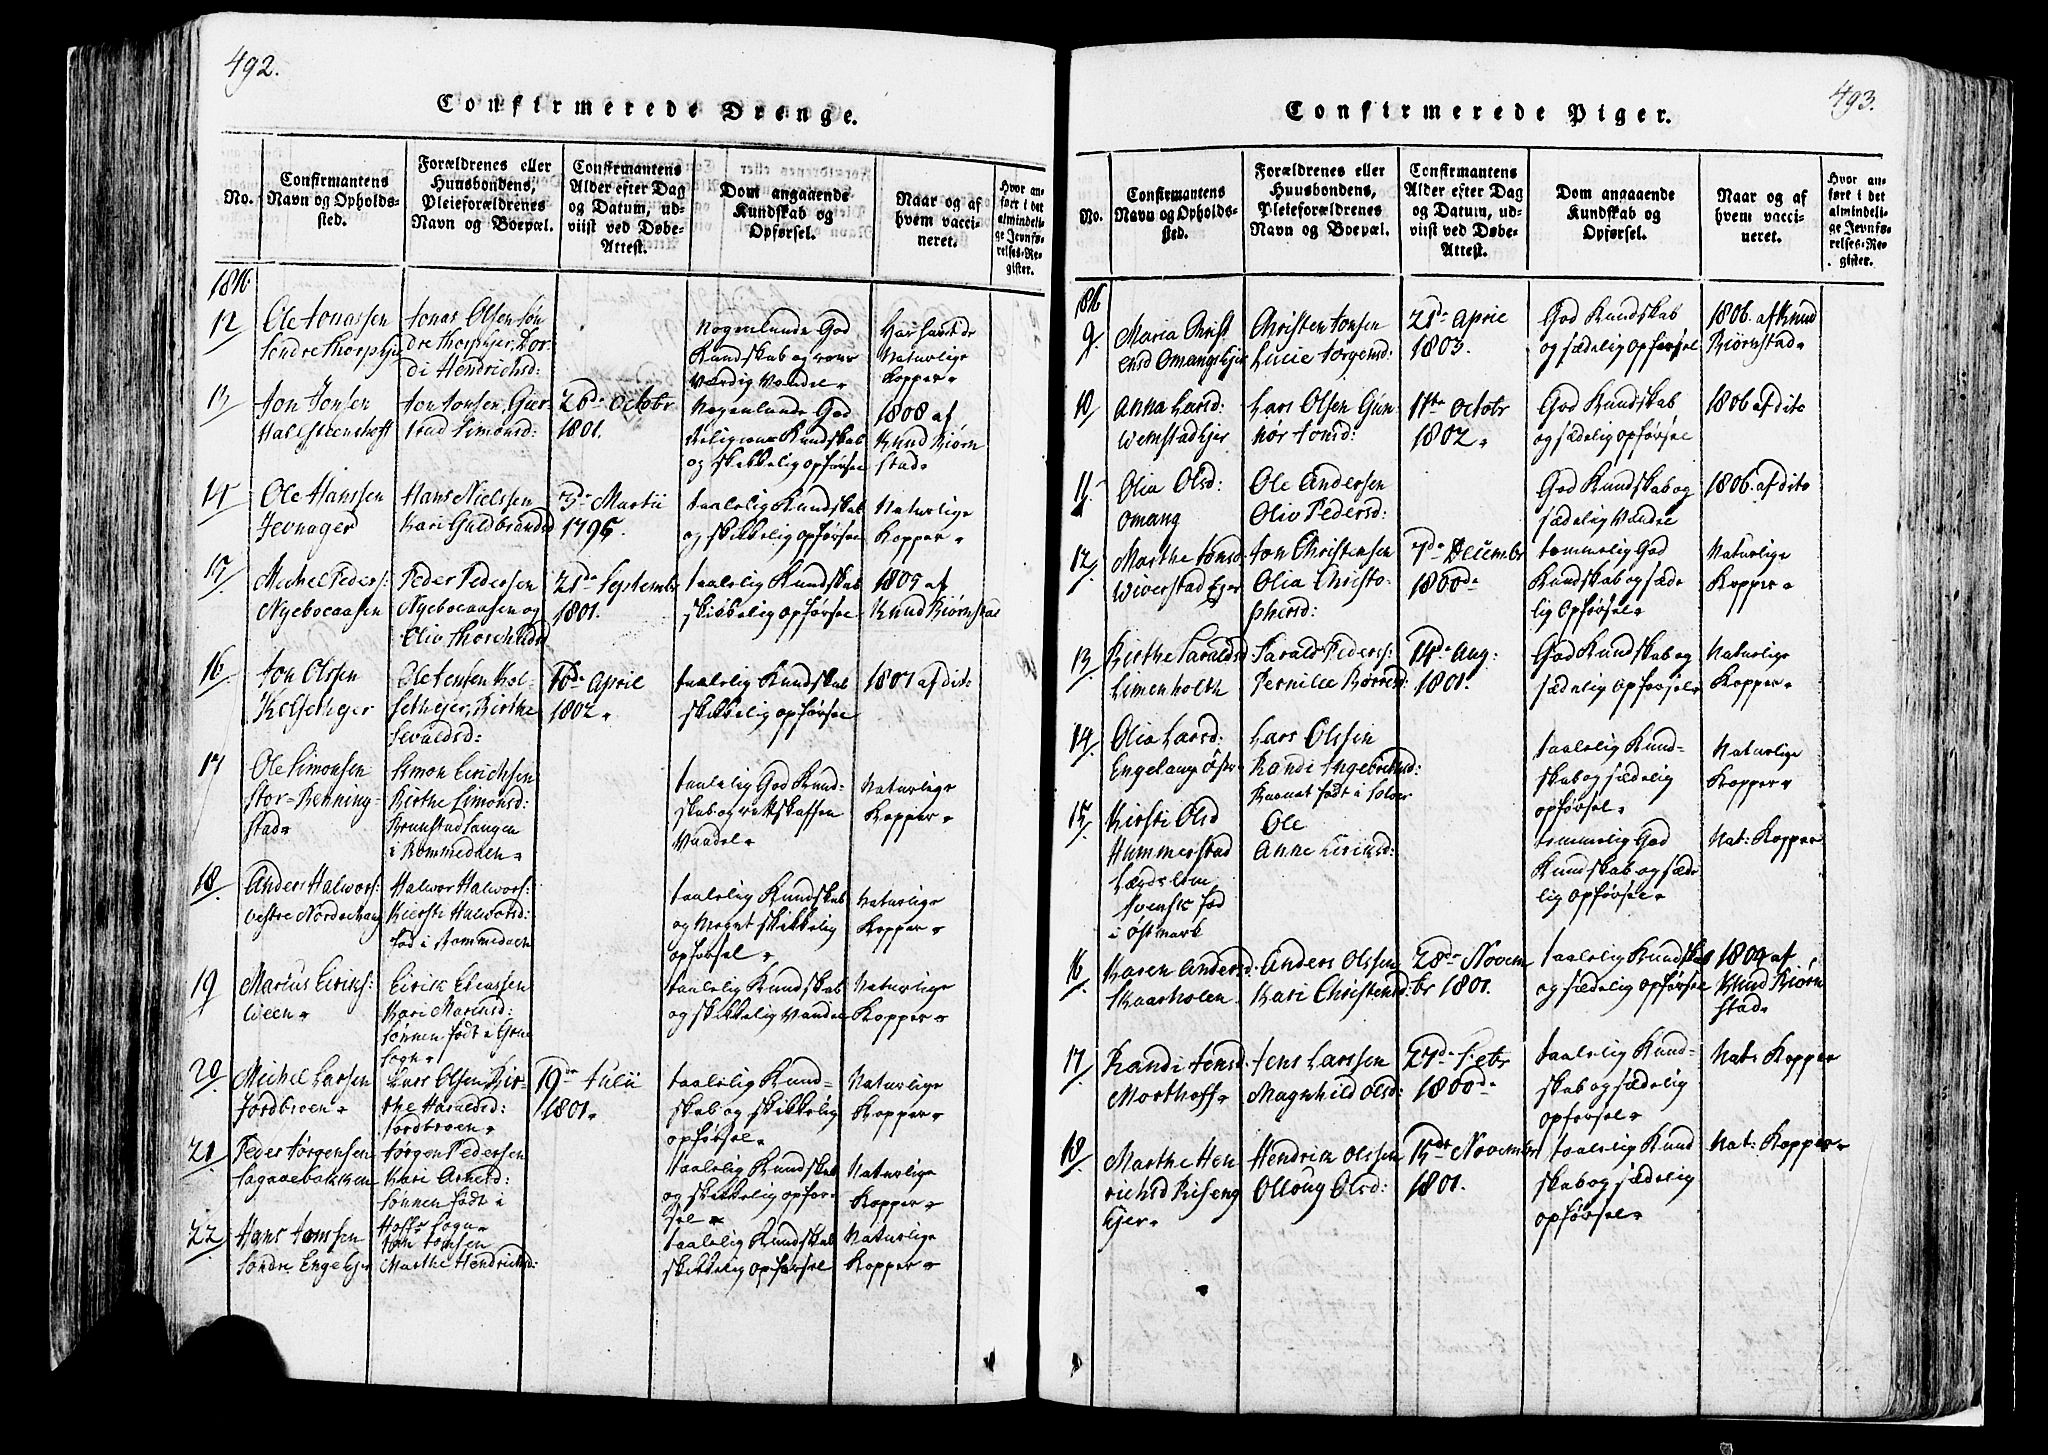 492.
Confirmerede Drenge.
No.
Confirmantens
Navn og Opholds-
sted.
Forældrenes eller
Huusbondens,
Pleieforældrenes
Navn og Boepæl.
Confirmantens
Alder efter Dag
og Datum, ud-
viist ved Døbe-
Attest.
Dom angaaende
Kundskab og
Opførsel.
Naar og af
hvem vacci-
neret.
Hvor an-
ført i det
almindeli-
ge Jevnfø-
relses-Re-
gister.
1816
12
Ole Jonassen
Søndre Thorp Ejer
Jonas Olsen Søn
dre Thorp Ejer,
Hendrichsd:
Nogenlunde God
Kundskab og
Værdig Vandel
Har havt de
Naturlige
Kopper
13
Jon Jonsen
Jon Jonsen, Gur-
Simonsd:
26de Octobr
1801.
Nogenlunde God
Religions Kundskab
og skikkelig opførsel
1808 af
Knud Biørn
stad
14
Ole Hanssen
Jevnager
Hans Nielssen
Kari Guldbrandsd
3de Martii
1796.
taalelig Kundskab
og skikkelig opførsel
Naturlige
Kopper
15
Michel Peders:
Nyeboeaasen
Peder Pedersen
Nyeboeaasen og
21de Septembr
1801.
taalelig Kundskab
skikkelig opførsel
1805 af
Knud Biørnstad
16
Jon Olssen
Ole Jensen
Birthe
Sevaldsd:
10de April
1802
taalelig Kundskab
skikkelig opførsel
1807 af dit:
17
Ole Simonsen
Stor-Benning-
stad
Simon Eirichsen
Birthe Simonsd:
i Rommedalen
taalelig God Kund-
skab og rettskaffen
Vandel
Naturlige
Kopper
18
Anders Halvors:
vestre Nordvang
Halvor Halvors:
Kiersti Halvorsd:
fød i Rommedalen
taalelig Kundskab
og Meget skikkelig
opførsel
Naturlige
Kopper
19
Marius Eirichs:
Lieen
Eirik Eliassen
Kari Mariusd:
Sønnen født i
Sogn
taalelig Kundskab
og skikkelig Vandel
Naturlige
Kopper
20
Michel Larsen
Jordbroen
Lars Olsen Bir-
the Haraldsd:
Jordbroen
19de Julii
1801
taalelig Kund-
skab og skikkelig
opførsel
Naturlige
Kopper
21
Peder Jørgensen
Sagaaebakken
Jørgen Pedersen
Kari Arnesd:
Sønnen født i
Hoffs Sogn
taalelig Kundskab
og skikkelig opfør-
sel
Naturlige
Kopper
22
Hans Jonssen
Søndre Enge Ejer
Jon Jonsen
Marthe Hendrichsd:
taalelig Kundskab
skikkelig opførsel
Naturlige
Kopper
493.
Confirmerede Piger.
No.
Confirmantens
Navn og Opholds-
sted.
Forældrenes eller
Huusbondens,
Pleieforældrenes
Navn og Boepæl.
Confirmantens
Alder efter Dag
og Datum, ud-
viist ved Døbe-
Attest.
Dom angaaende
Kundskab og
Opførsel.
Naar og af
hvem vacci-
neret.
Hvor an-
ført i det
almindeli-
ge Jevnfø-
relses-Re-
gister.
1816
9
Maria Christ
ensd Omangs Ejer
Christen Jonsen
Lucie Jørgensd:
21de April
1803.
God Kundskab
og sædelig opførsel
1806. af Knud
Biørnstad
10
Anna Larsd:
Wemstad Ejer
Lars Olsen Gun
hør Jonsd:
11te Octobr
1802
God Kundskab
og sædelig opførsel
1806 af dito
11
Olia Olsd:
Omang
Ole Anderssen
Oliv Pedersd:
God Kundskab og
sædelig Vandel
1806. af dito
12
Marthe Jonsd
Wiverstad Ejer
Jon Christensen
Olia Christo-
phersd:
7de Decembr
1800de
temmelig God
Kundskab og sæde
lig Opførsel
Naturlige
Kopper
13
Birthe Haraldsd
Simenholth
Harald Peders:
Pernille Børresd:
14de Aug:
1801.
God Kundskab og
sædelig opførsel
Naturlige
Kopper
14
Olia Larsd:
Engelaug Øster
Lars Olssen
Randi Ingebretsd:
Barnet født i Soløer
taalelig Kund-
skab og sædelig
opførsel
Naturlige
Kopper
15
Kirsti Olsd
Hummerstad
Svensk fød
i Østmark
Ole
Anne Eiriksd:
temmelig God
Kundskab og sæde
lig opførsel
Nat: Kopper
16
Karen Andersd:
Skaarholen
Anders Olssen
Kari Christensd:
28de Novem
br 1801.
taalelig Kundskab
og sædelig opførsel
1804 af
Knud Biørn
stad
17
Randi Jensd
Morthoff
Jens Larssen
Magnhild Olsd:
27de Febr
1800de
taalelig Kund-
skab og sædelig
opførsel
Nat: Kopper
18
Marthe Hen
richsd Riseng
Ejer
Hendrik Olssen
Olloug Olsd:
15de Novembr
1801.
taalelig Kund
skab og sædelig
opførsel
Nat: Kopper